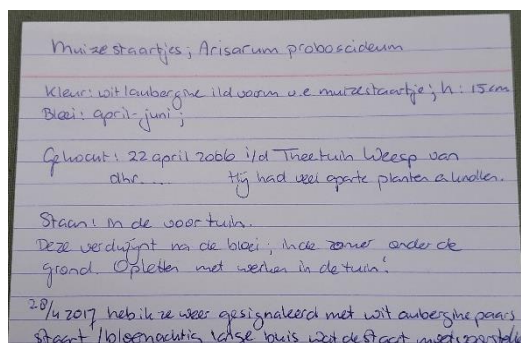 Muizestaartjes; Arisarum proboscideum
Kleur: wit/aubergine i/d vorm v.e muizestaartje; h: 15cm
Bloei: april-juni;
Gekocht: 22 april 2006 i/d Theetuin Weesp van
dhr.... Hij had veel aparte planten & knollen.
Staan: in de voortuin.
Deze verdwijnt na de bloei; in de zomer onder de
grond. Opletten met werken in de tuin!
28/4 2017 heb ik ze weer gesignaleerd met wit auberginepaars
staart / bloemachtig buis wat de staart